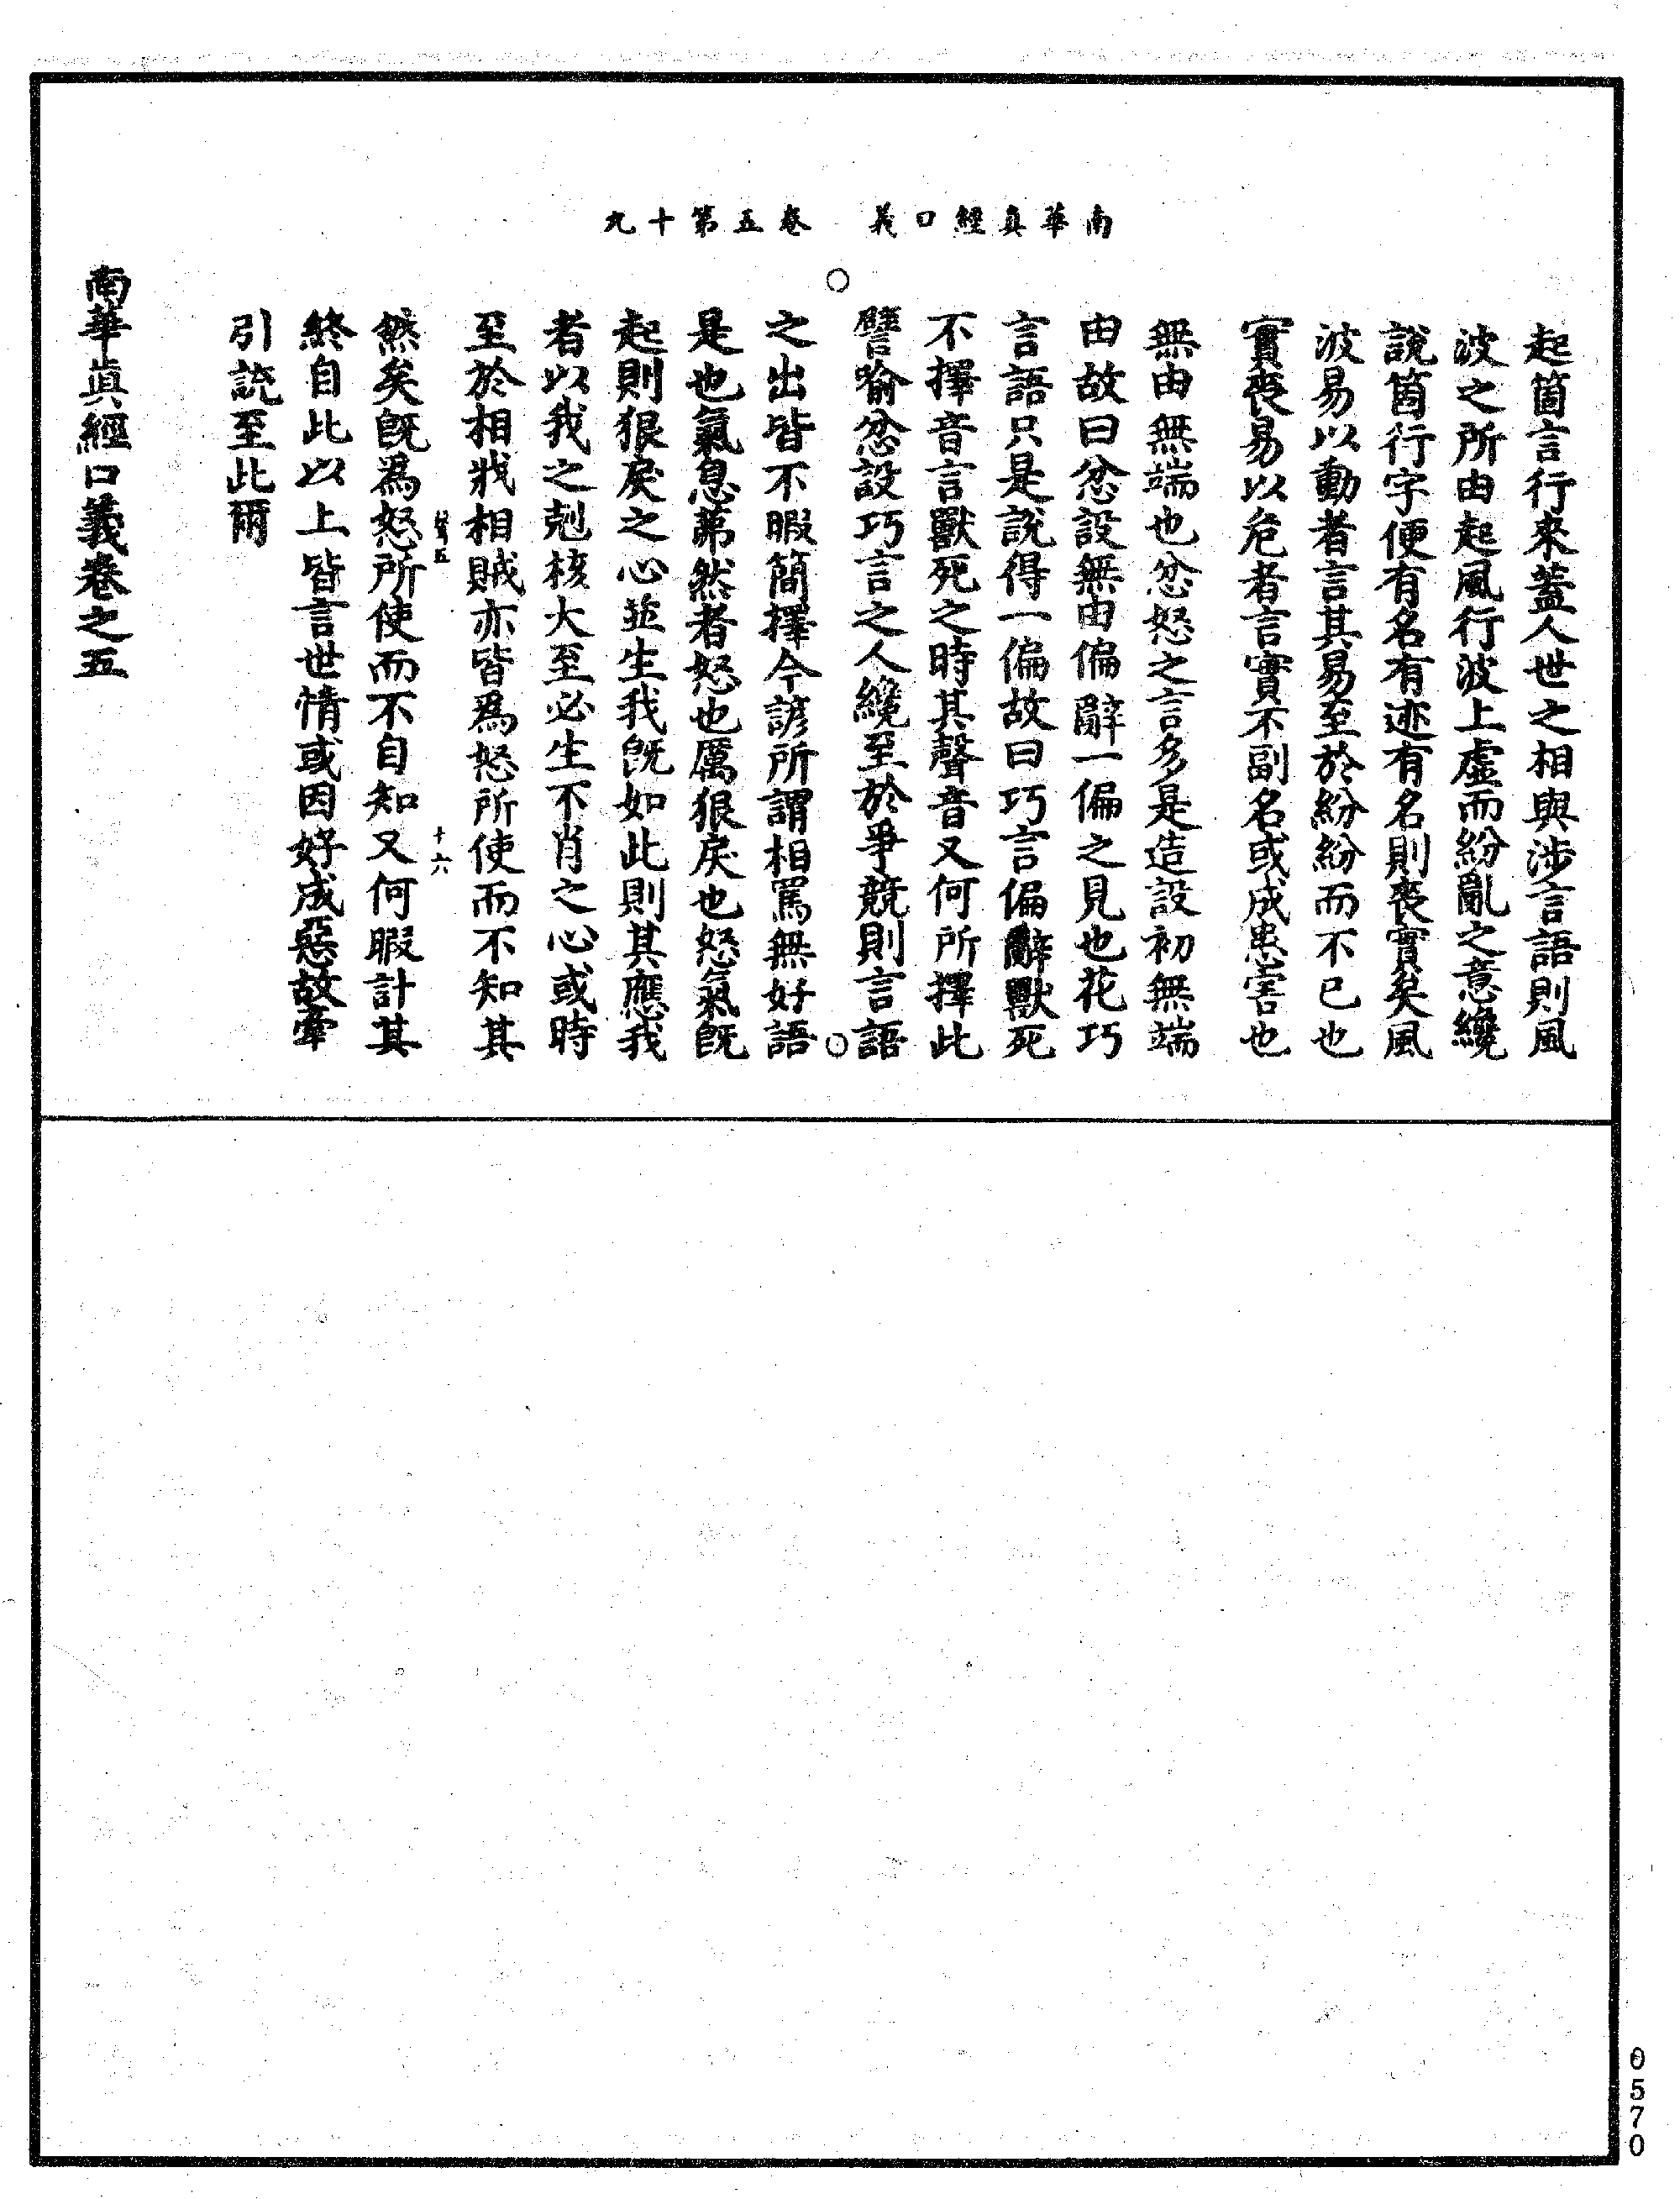 南華真經口義　卷五第十九
起箇言行來蓋人世之相與涉言語則風
波之所由起風行波上虛而紛亂之意纔
說箇行字便有名有迹有名則喪實矣風
波易以動者言其易至於紛紛而不已也
實喪易以危者言實不副名或成患害也
無由無端也忿怒之言多是造設初無端
由故曰忿設無由偏辭一偏之見也花巧
言語只是說得一偏故曰巧言偏辭獸死
不擇音言獸死之時其聲音又何所擇此
譬喻忿設巧言之人纔至於爭競則言語
之出皆不暇簡擇今諺所謂相罵無好語
是也氣息茀然者怒也厲狠戾也怒氣旣
起則狠戾之心並生我旣如此則其應我
者以我之剋核大至必生不肖之心或時
至於相戕相賊亦皆爲怒所使而不知其
然矣旣爲怒所使而不自知又何暇計其
十六
終自此以上皆言世情或因好成惡故牽
引說至此爾
南華眞經口義卷之五
0570